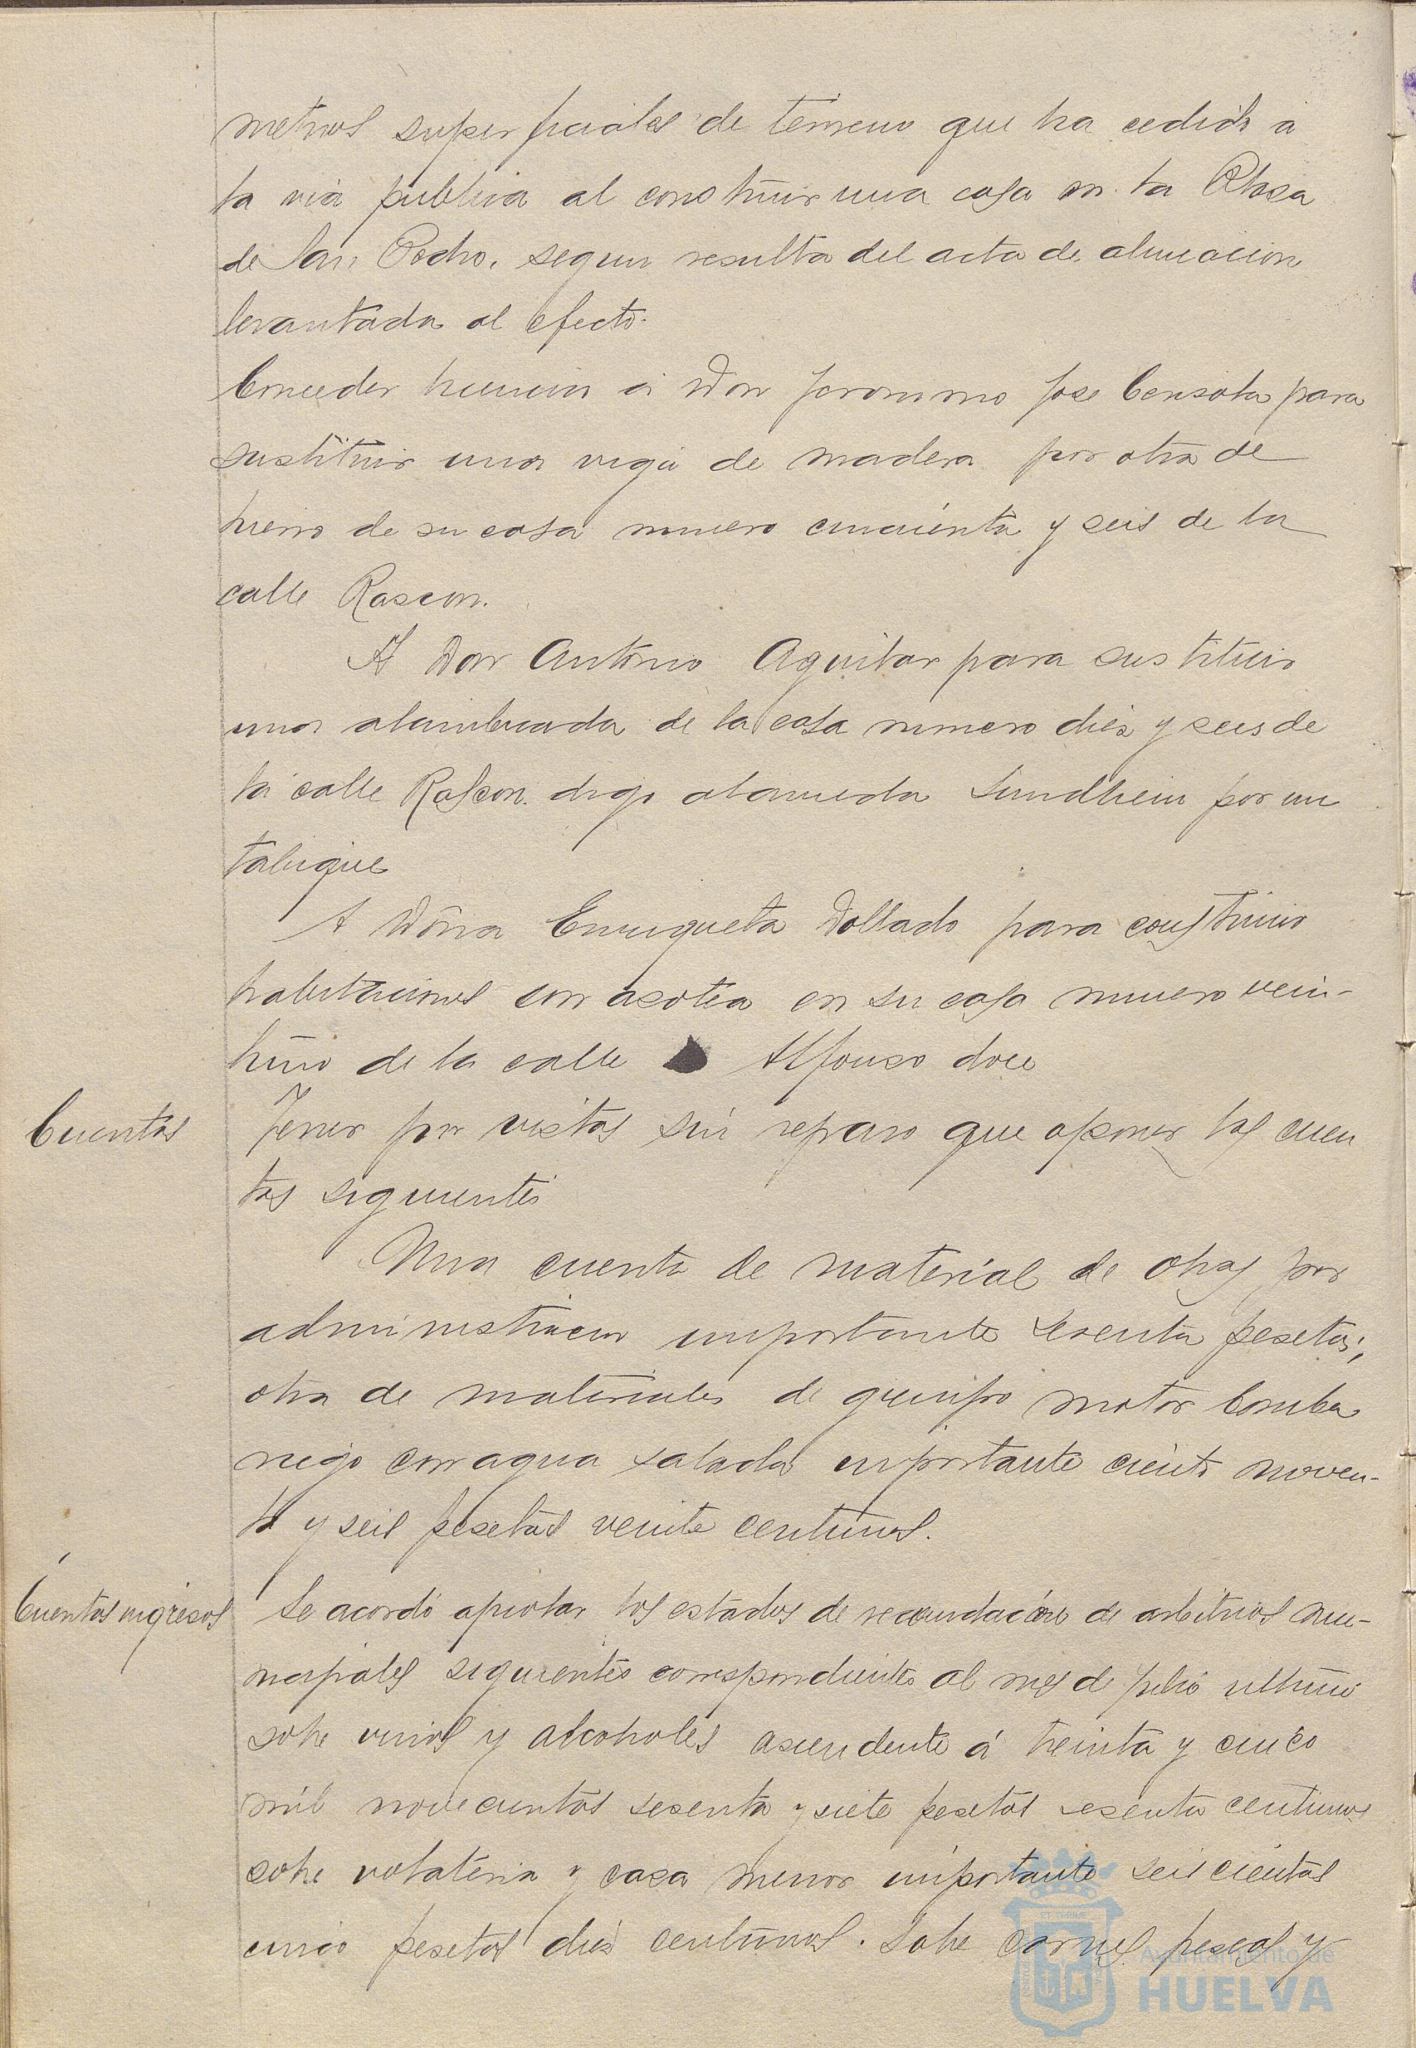 metros superficiales de terreno que ha cedido a
la via publica al construir una casa en la Plasa
de San Pedro, segun resulta del acta de alineacion
levantada al efecto.
Conceder licencia a Don Jeronimo Jose para
sustituir una viga de madera por otra de
hierro de su casa numero cincuenta y seis de la
calle Rascon.
A Don Antonio Aguilar para sustituir
una alambrada de la casa numero dies y seis de
la calle Rascon digo alameda Sundheim por un
tabique
A Doña Enriqueta Dollado para construir
habitaciones con asotea en su casa numero vein-
tiuno de la calle Alfonso doce
Cuentas
Tener por vistas sin reparo que oponer las cuen
tas siguientes
Una cuenta de material de obras por
administracion importante sesenta pesetas,
otra de materiales de grupo motor bomba
riego con agua salada importante ciento noven-
ta y seis pesetas veinte centimos.
Cuentas ingresos
Se acordó aprobar los estados de recaudación de arbitrios mu-
nicipales siguientes correspondientes al mes de julio ultimo
sobre vinos y alcoholes ascendente á treinta y cinco
mil novecientas sesenta y siete pesetas sesenta centimos
sobre volateria y casa menor importante seiscientas
cinco pesetas dies centimos. Sobre carnes pescas y
Ayuntamiento de
HUELVA